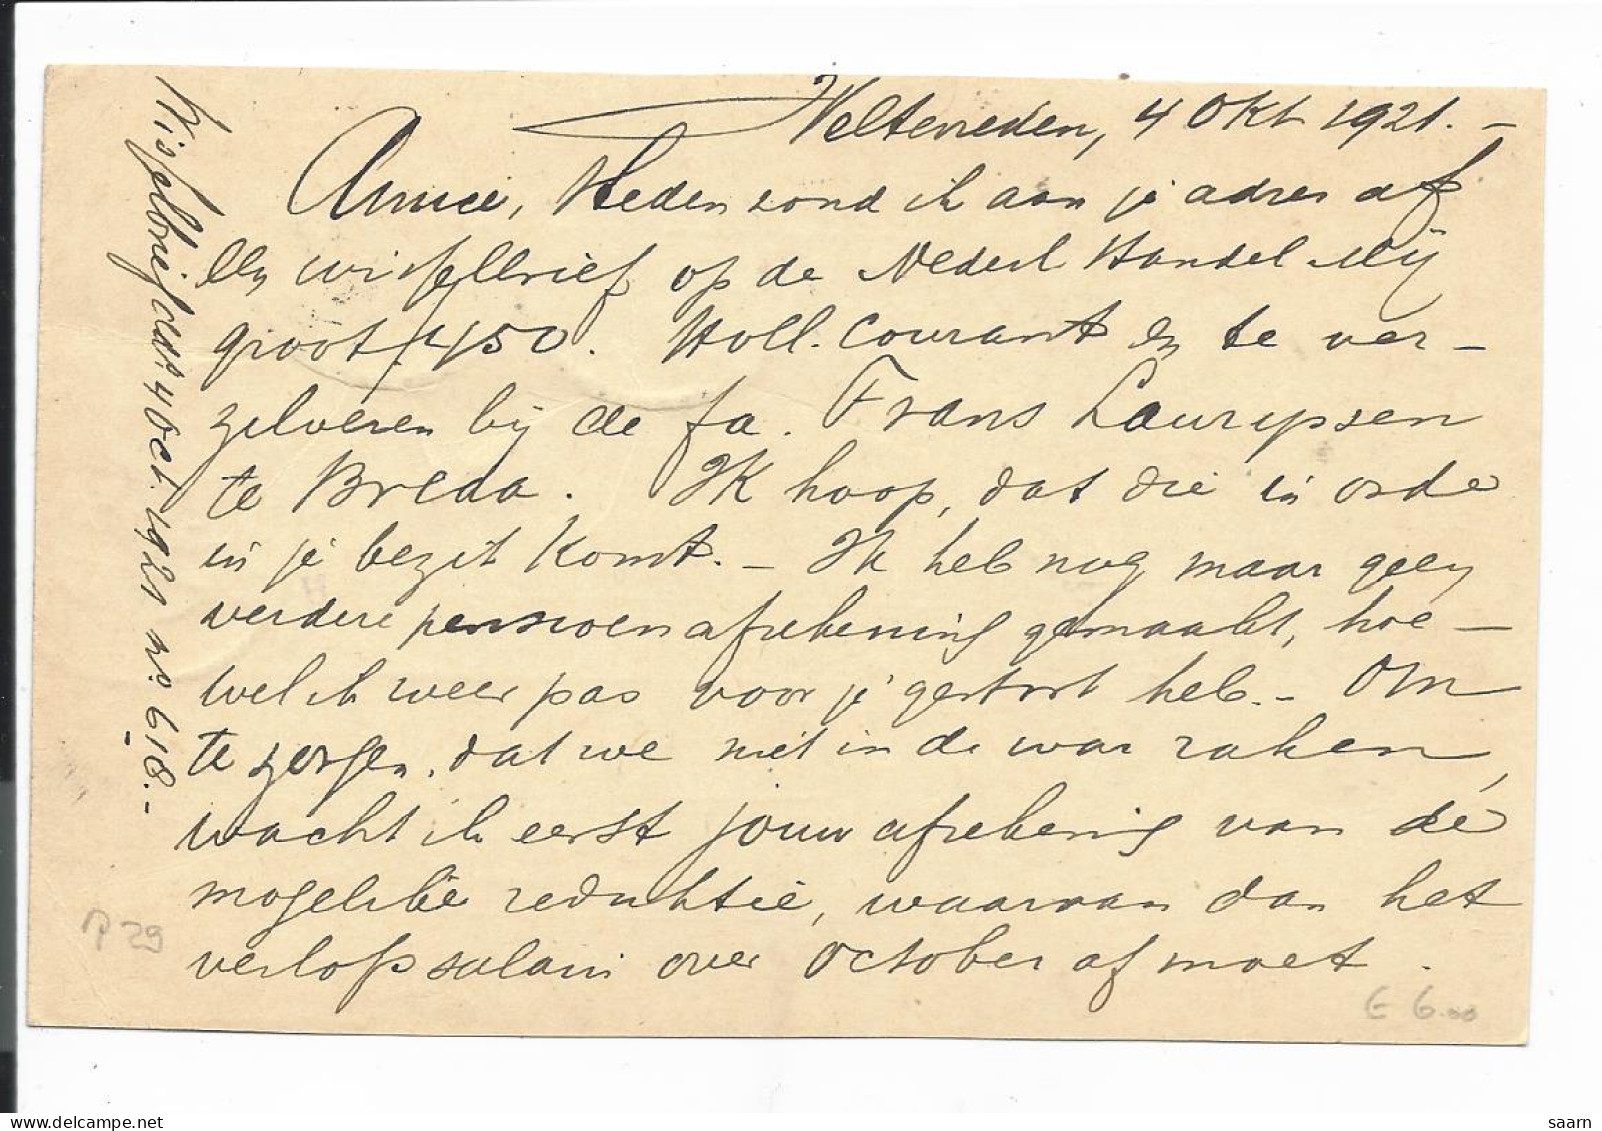 Weltevreden, 4 Okt 1921. –
Amice, Heden zond ik aan je adres af
een wisselbrief op de Nederl Handel Mij
groot f 450. Holl. Courant en te ver-
zilveren bij de fa. Frans Laurijssen
te Breda. Ik hoop, dat die in orde
in je bezit komt. – Ik heb nog maar geen
verdere pensioenafrekening gemaakt, hoe-
wel ik weer pas voor je gestort heb. – Om
te zorgen, dat we niet in de war raken,
wacht ik eerst jouw afrekening van de
mogelijke reduktie, waarvan dan het
verlofssalaris over October af moet.
Wisselbrief dat. 4 Oct. 1921 no. 618. –
P 29
€ 6.00
delcampe.net
saarn